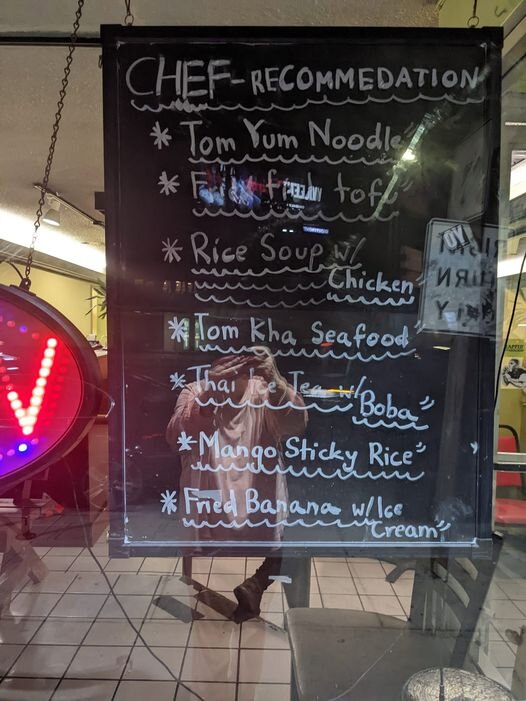 CHEF-RECOMMEDATION
* Tom Yum Noodle
* Fish tofu"
* Rice Soup w/
Chicken"
* Tom Kha Seafood"
* Thai Ice Tea w/
Boba"
* Mango Sticky Rice"
* Fried Banana w/Ice
Cream"
NO
V